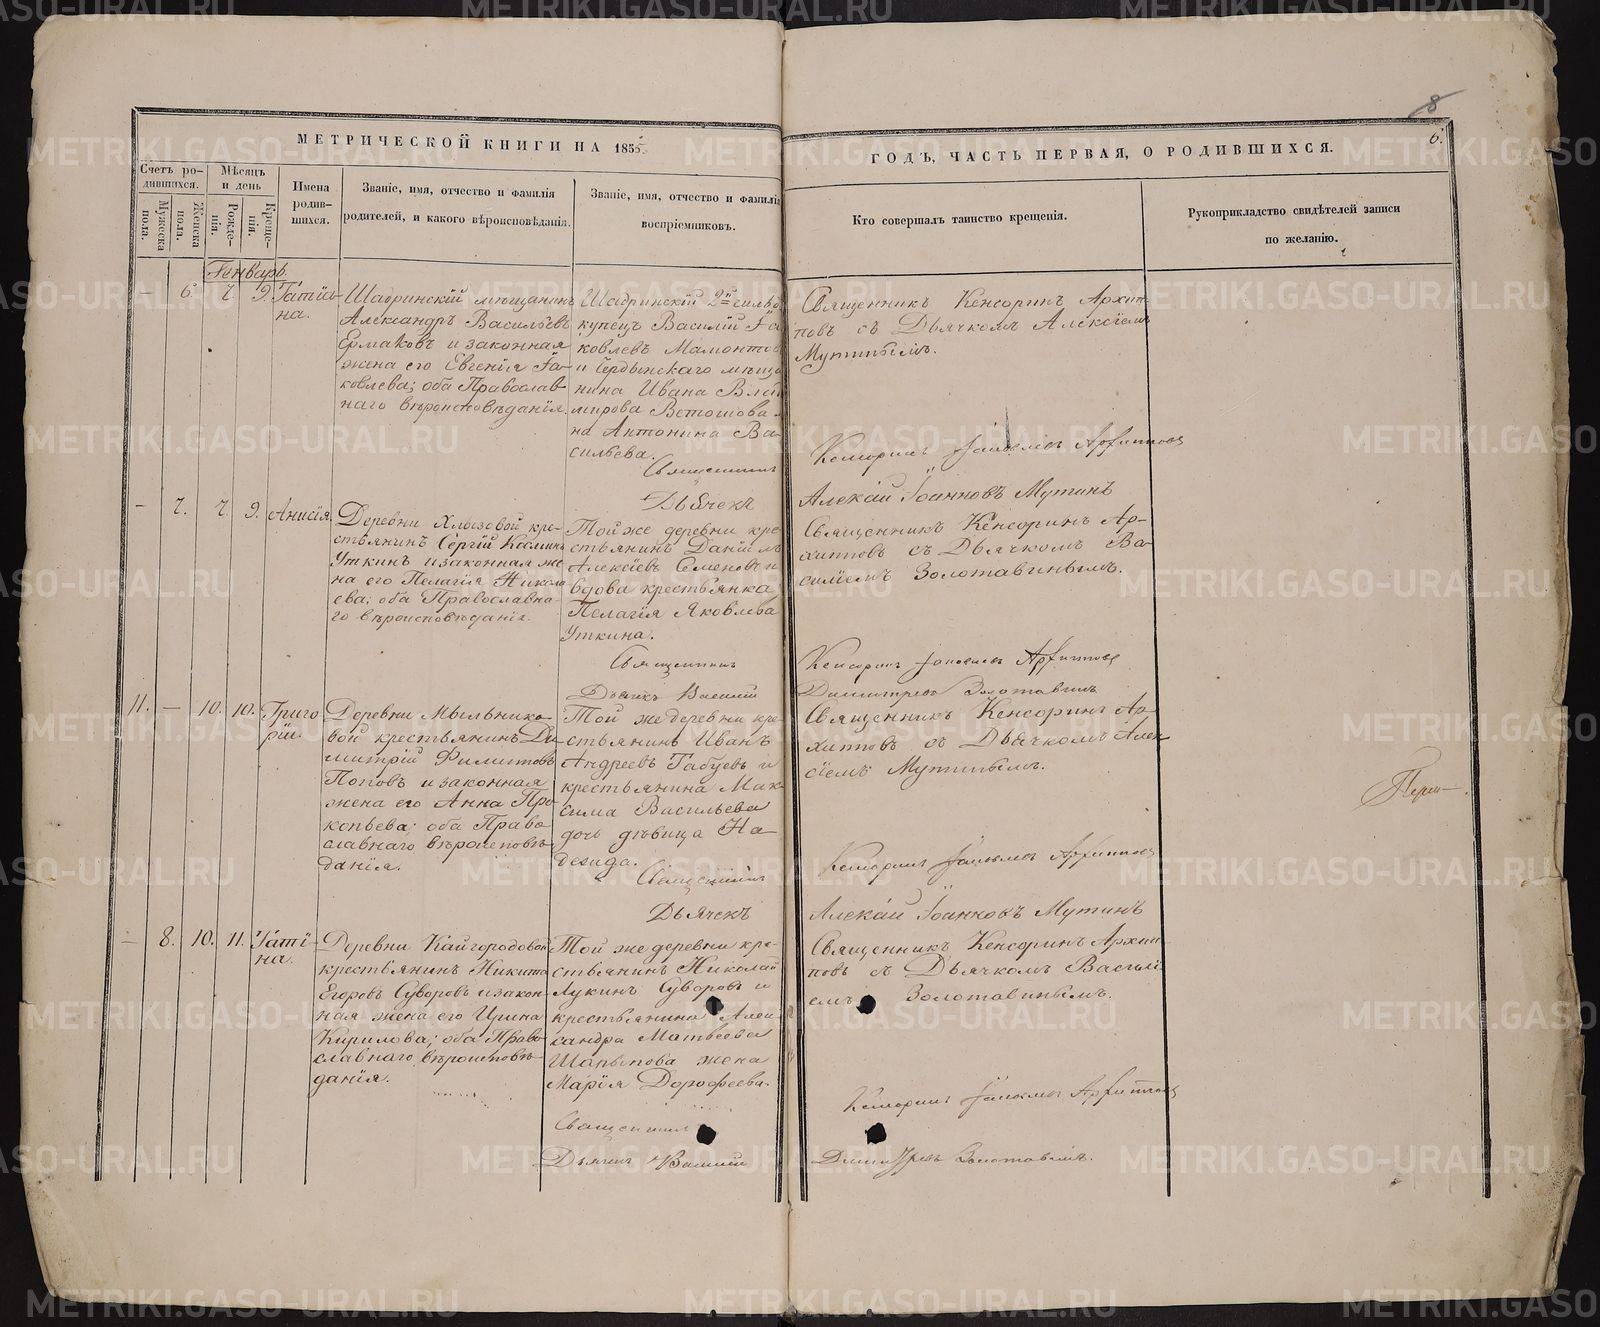 МЕТРИЧЕСКОЙ КНИГИ НА 1855
ГОДЪ, ЧАСТЬ ПЕРВАЯ, О РОДИВШИХСЯ.
8
6.
Счетъ родившихся.
Мужеска пола.
Женска пола.
Мѣсяцъ и день
Рожденія.
Крещенія.
Имена родившихся.
Званіе, имя, отчество и фамилія
родителей, и какого вѣроисповѣданія.
Званіе, имя, отчество и фамилія
воспріемниковъ.
Кто совершалъ таинство крещенія.
Рукоприкладство свидѣтелей записи
по желанію.
Генварь.
— 6. 7. 9. Татіана.
Шадринскій мѣщанинъ
Александръ Васильевъ
Ермаковъ и законная
жена его Евгенія Яковлева;
оба Православнаго
вѣроисповѣданія.
Шадринскій 2й гильд
купецъ Василій Яковлевъ
Мамонтовъ
и Чердынскаго мѣщанина
Ивана
Ветошова
Антонина Васильева.
Священникъ
Дьячекъ
Священникъ Кенсоринъ Архиповъ
съ Дьячкомъ Алексіемъ
Мутинымъ.
Кенсоринъ Архиповъ
Алексій Іоанновъ Мутинъ
— 7. 7. 9. Анисія.
Деревни Хлызовой крестьянинъ
Сергій Козминъ
Уткинъ и законная жена
его Пелагія Николаева;
оба Православнаго
вѣроисповѣданія.
Той же деревни крестьянинъ
Даніилъ
Алексіевъ Семеновъ и
вдова крестьянка
Пелагія Яковлева
Уткина.
Священникъ
Дьячекъ Василій
Священникъ Кенсоринъ Архиповъ
съ Дьячкомъ Василіемъ
Золотавинымъ.
Кенсоринъ Архиповъ
Димитріевъ Золотавинъ
11. — 10. 10. Григорій.
Деревни Мыльниковой
крестьянинъ Димитрій
Филипповъ
Поповъ и законная
жена его Анна Прокопьева;
оба Православнаго
вѣроисповѣданія.
Той же деревни крестьянинъ
Иванъ
Андреевъ Габуевъ и
крестьянина Максима
Васильева
дочь дѣвица Надежда.
Священникъ
Дьячекъ
Священникъ Кенсоринъ Архиповъ
съ Дьячкомъ Алексіемъ
Мутинымъ.
Кенсоринъ Архиповъ
Алексій Іоанновъ Мутинъ
— 8. 10. 11. Татіана.
Деревни Кайгородовой
крестьянинъ Никита
Егоровъ Суворовъ и законная
жена его Ирина
Кирилова; оба Православнаго
вѣроисповѣданія.
Той же деревни крестьянинъ
Николай
Лукинъ Суворовъ и
крестьянина Александра
Матвѣева
Шарыпова жена
Марія Дорофеева.
Священникъ
Дьячекъ Василій
Священникъ Кенсоринъ Архиповъ
съ Дьячкомъ Василіемъ
Золотавинымъ.
Кенсоринъ Архиповъ
Димитріевъ Золотавинъ.
METRIKI.GASO-URAL.RU